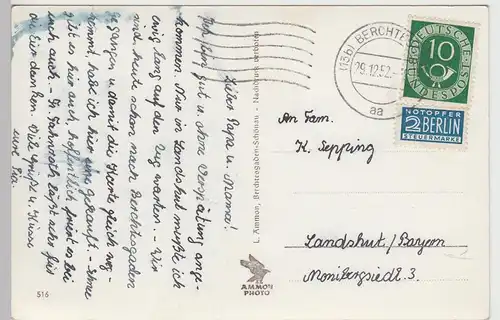 Lieber Papa u. Mama!
Bin hier gut u. ohne Verspätung ange-
kommen. Nur in Landshut mußte ich
ewig lang auf den Zug warten. – Wir
sind heute schon nach Berchtesgaden
gegangen u. damit die Karte gleich weg-
kommt, habe ich hier eine gekauft. – Schnee
gibt es hier auch, hoffentlich schneit es bei
euch auch. – Fr. läßt
für
danken. Viele Grüße u. Küsse
eure
516
L. Ammon, Berchtesgaden-Schönau - Nachdruck verboten
AMMON
PHOTO
(13b) BERCHTE
29.12.52.
aa
DEUTSCHE
BUNDESPOST
10
NOTOPFER
2 BERLIN
STEUERMARKE
An Fam.
K. Sepping
Landshut/Bayern
Monibergsiedl. 3.